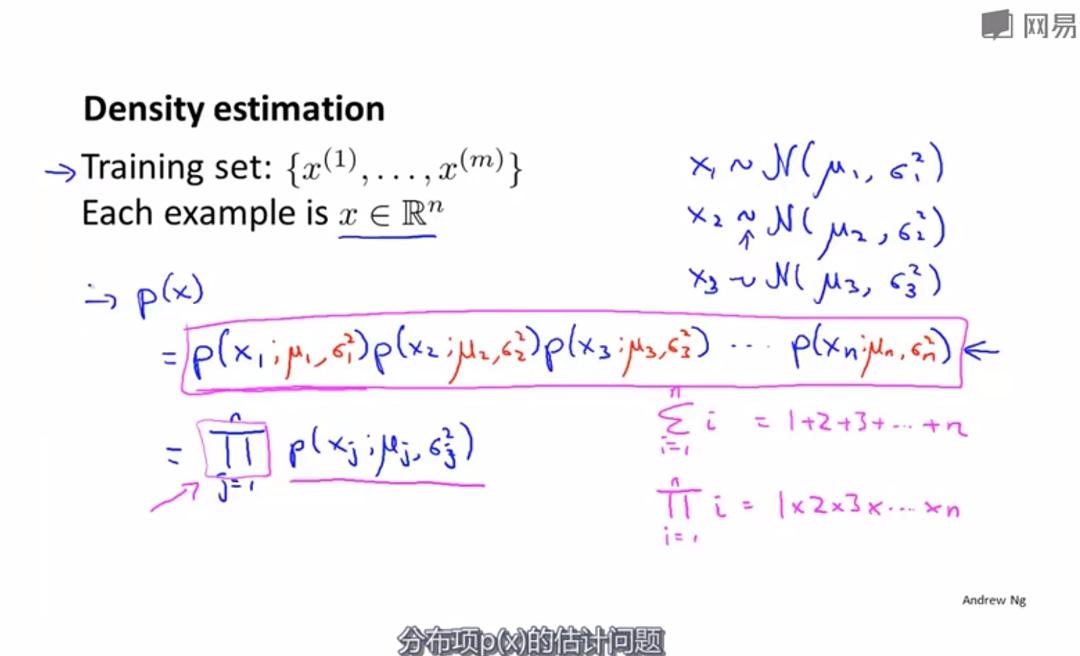 网易
Density estimation
→ Training set: {x⁽¹⁾, ..., x⁽ᵐ⁾}
Each example is x ∈ ℝⁿ
x₁ ~ N(μ₁, σ₁²)
x₂ ~ N(μ₂, σ₂²)
x₃ ~ N(μ₃, σ₃²)
→ p(x)
= p(x₁; μ₁, σ₁²) p(x₂; μ₂, σ₂²) p(x₃; μ₃, σ₃²) ... p(xₙ; μₙ, σₙ²) ←
= ∏ⁿⱼ₌₁ p(xⱼ; μⱼ, σⱼ²)
∑ⁿᵢ₌₁ i = 1+2+3+...+n
∏ⁿᵢ₌₁ i = 1×2×3×...×n
Andrew Ng
分布项p(x)的估计问题